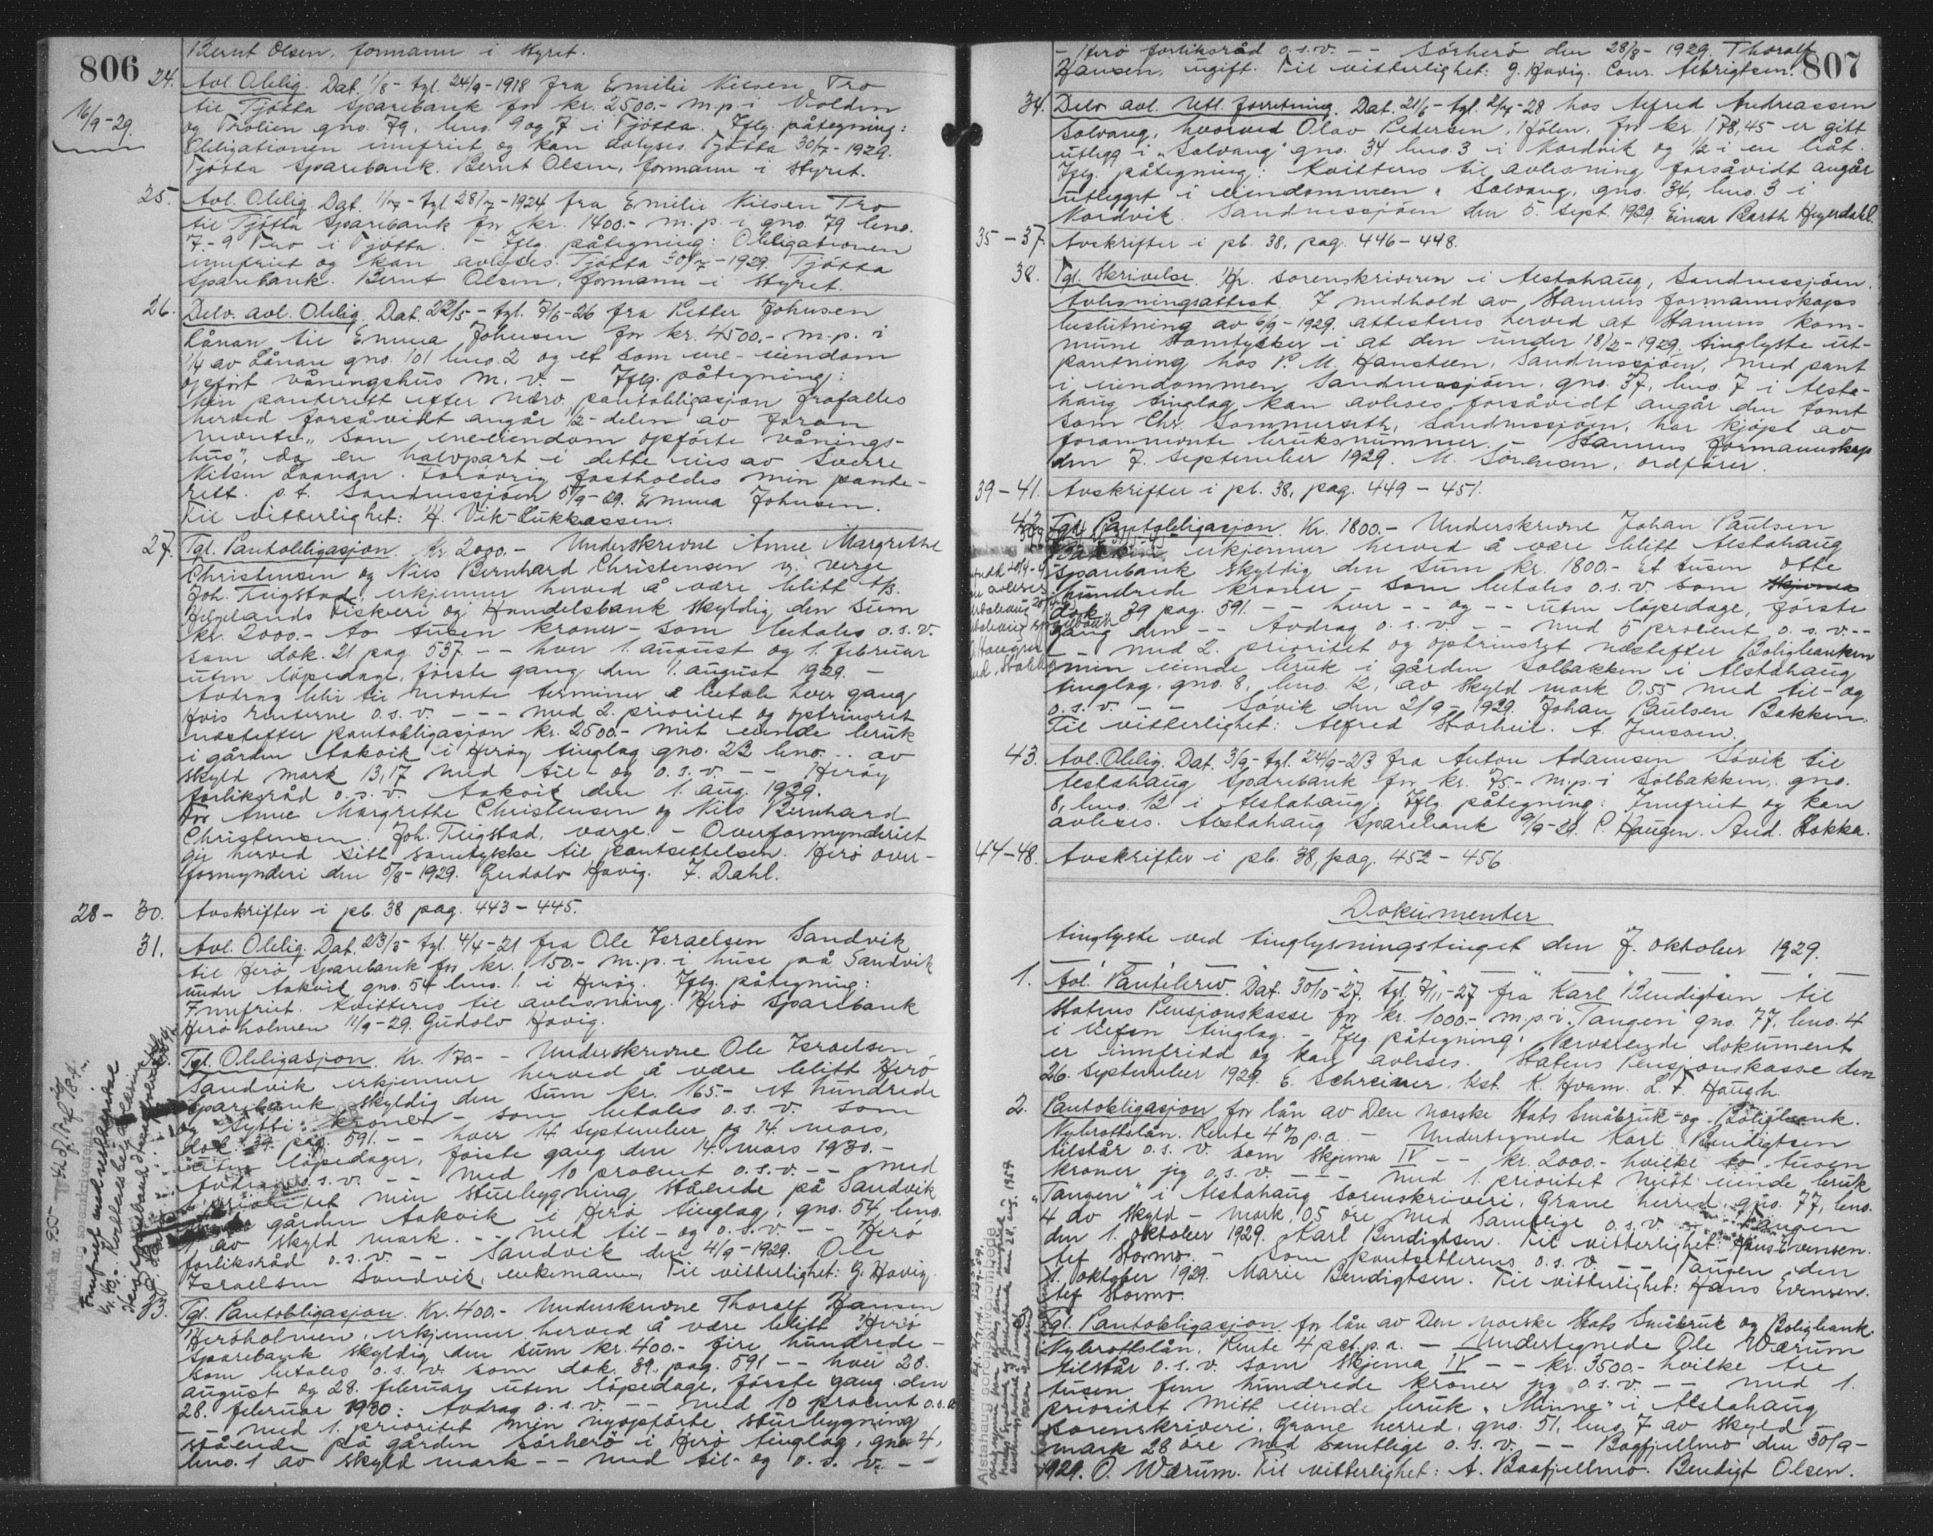 806
Bernt Olsen, formann i styret.
24. Avl. Oblig. Dat. 1/8 - tgl. 24/9 - 1918 fra Emilie Nilsen Tro
16/9-29.
til Tjøtta Sparebank for kr. 2500.- m. p. i
og gno. 79, bno. 9 og 7 i Tjøtta. Iflg. påtegning:
Obligationen innfriet og kan avlyses. Tjøtta 30/7 - 1929.
Tjøtta Sparebank. Bernt Olsen, formann i styret.
25. Avl. Oblig. Dat. 1/7 - tgl. 28/7 - 1924 fra Emilie Nilsen Tro
til Tjøtta Sparebank for kr. 1400.- m. p. i gno. 79 bno.
7-9 Tro i Tjøtta. - Iflg. påtegning: Obligationen
innfriet og kan avlyses. Tjøtta 30/7 - 1929. Tjøtta
Sparebank. Bernt Olsen, formann i styret.
26. Delv. avl. Oblig. Dat. 22/5 - tgl. 7/6 - 26 fra Petter Johnsen
Lånan til Emma Johnsen for kr. 4500.- m. p. i
1/4 av Lånan gno. 101 bno. 2 og et som ene-eiendom
opført våningshus m. v. - Iflg. påtegning:
Min panterett efter nærv. pantobligasjon frafalles
herved forsåvidt angår 1/2-delen av foran
nevnte, "som eneeiendom opførte vånings-
hus", da en halvpart i dette eies av Sverre
Nilsen Laanan. Forøvrig fastholdes min pante-
rett. p. t. Sandnessjøen 5/9-29. Emma Johnsen.
Til vitterlighet: H. Vik-Lukkassen.
27. Tgl. Pantobligasjon. Kr. 2000.- Underskrevne Anne Margrethe
Christensen og Nils Bernhard Christensen v. verge
Joh. Fligstad, erkjenner herved å være blitt A/s.
Helgelands Fiskeri og Handelsbank skyldig den sum
kr. 2000.- to tusen kroner - som betales o. s. v.
som dok. 21 pag. 537 - - hver 1. august og 1. februar
uten løpedage, første gang den 1. august 1929. -
Avdrag blir til nevnte terminer å betale hver gang
hvis renterne o. s. v. - - - med 2. prioritet og optrinsret
næstefter pantobligasjon kr. 2500.- mit eiende bruk
i gården Aakvik i Herøy tinglag gno. 23 bno. .. av
skyld mark 13,17 med til- og o. s. v. - - Herøy
forliksråd o. s. v. Aakvik den 1. aug. 1929.
For Anne Margrethe Christensen og Nils Bernhard
Christensen. Joh. Fligstad, værge. - Overformynderiet
gir herved sitt samtykke til pantsettelsen. Herø over-
formynderi den 5/8 - 1929. Gudolv Hovig. F. Dahl.
28 - 30. Avskrifter i pb. 38 pag. 443 - 445.
31. Avl. Oblig. Dat. 23/3 - tgl. 4/4 - 21 fra Ole Israelsen Sandvik
til Herø Sparebank for kr. 150.- m. p. i huse på Sandvik
under Aakvik gno. 54 bno. 1 i Herøy. Iflg. påtegning:
Innfriet. Kvitteres til avlysning. Herø Sparebank
Herøholmen 11/9-29. Gudolv Hovig.
Tgl. Obligasjon. Kr. 170.- - Underskrevne Ole Israelsen
Sandvik erkjenner herved å være blitt Herø
Sparebank skyldig den sum kr. 165.- et hundrede
og kroner - som betales o. s. v. som
dok. 39. pag. 591. - - hver 14 september og 14. mars,
uten løpedager, første gang den 14. mars 1930. -
Avdrag o. s. v. - - med 10 procent o. s. v. - - med
prioritet min stuebygning stående på Sandvik
gården Aakvik i Herø tinglag, gno. 54, bno.
1 av skyld mark. - - med til- og o. s. v. - - Herø
forliksråd o. s. v. - - Sandvik den 4/9 - 1929. Ole
Israelsen Sandvik, enkemann. Til vitterlighet: G. Hovig.
33. Tgl. Pantobligasjon. Kr. 400.- Underskrevne Thoralf Hansen
Herøholmen, erkjenner herved å være blitt Herø
Sparebank skyldig den sum kr. 400.- fire hundrede -
som betales o. s. v. som dok. 39. pag. 591 - - hver 28.
august og 28. februar uten løpedage, første gang den
28. februar 1930: Avdrag o. s. v. - - med 10 procent o.s.v.
- - med 1. prioritet min nyopførte stuebygning
stående på gården Sørherø i Herø tinglag, gno. 4,
bno. 1 av skyld mark - - med til- og o. s. v. - -
807
- Herø forliksråd o. s. v. - - Sørherø den 28/8 - 1929. Thoralf
Hansen, ugift. Til vitterlighet: G. Hovig. Conr. Albrigtsen.
34. Delv. avl. Utl. forretning. Dat. 21/6 - tgl. 2/7 - 28 hos Alfred Andreassen
Solvang, hvorved Olav Pedersen, Hølen, for kr. 178,45 er gitt
utlegg i "Solvang" gno. 34 bno. 3 i Nordvik og 1/2 i en båt.
Iflg. påtegning: Kvitteres til avlysning forsåvidt angår
utlegget i eiendommen "Solvang, gno. 34, bno. 3 i
Nordvik. Sandnessjøen den 5. sept. 1929. Einar Barth Heyerdahl.
35 - 37. Avskrifter i pb. 38, pag. 446 - 448.
38. Tgl. Skrivelse. Hr. sorenskriveren i Alstahaug, Sandnessjøen.
Avlysningsattest. I medhold av Stamnes formannskaps
beslutning av 6/9 - 1929. attesteres herved at Stamnes kom-
mune samtykker i at den under 18/2 - 1929 tinglyste ut-
pantning hos P. M. Hansteen, Sandnessjøen, med pant
i eiendommen Sandnessjøen, gno. 37, bno. 7 i Alsta-
haug tinglag kan avlyses forsåvidt angår den tomt
som Chr. Sommerseth, Sandnessjøen, har kjøpt av
forannevnte bruksnummer. - Stamnes formannskap
den 7. september 1929. M. Sørensen, ordfører.
39 - 41. Avskrifter i pb. 38, pag. 449 - 451.
42. Tgl. Pantobligasjon. Kr. 1800.- Underskrevne Johan Paulsen
erkjenner herved å være blitt Alstahaug
Sparebank skyldig den sum kr. 1800.- Et tusen otte
hundrede kroner - som betales o. s. v. som
dok. 39 pag. 591. - - hver - - og - - uten løpedage, første
gang den - - Avdrag o. s. v. - - med 5 procent o. s. v. - -
- - med 2. prioritet og optrinsret næstefter Boligbanken
min eiende bruk i gården Solbakken i Alstahaug
tinglag. gno. 8, bno. 12, av skyld mark 0.55 med til- og
o. s. v. - - Søvik den 2/9 - 1929. Johan Paulsen Bakken.
Til vitterlighet: Alfred Storheil. A. Jenssen.
43. Avl. Oblig. Dat. 3/9 - tgl. 24/9 - 23 fra Anton Adamsen Søvik til
Alstahaug Sparebank for kr. 75.- m. p. i Solbakken, gno.
8, bno. 12 i Alstahaug. Iflg. påtegning: Innfriet og kan
avlyses. Alstahaug Sparebank 9/9-29. P. Haugen. And. Hokka.
44 - 48. Avskrifter i pb. 38, pag. 452 - 456
Dokumenter
tinglyste ved tinglysningstinget den 7. oktober 1929.
1. Avl. Pantebrev. Dat. 30/10-27, tgl. 7/11-27 fra Karl Bendigtsen til
Statens Pensjonskasse for kr. 1000.- m. p. i "Tangen" gno. 77, bno. 4
i Vefsn tinglag. - Iflg. påtegning: Nærværende dokument
er innfridd og kan avlyses. Statens Pensjonskasse den
26. september 1929. E. Schreiner. kst. K. Hvam. L. F. Haugh.
2. Pantobligasjon for lån av Den norske Stats Småbruk- og Boligbank.
Nybrottslån. Rente 4% p. a. - Undertegnede Karl Bendigtsen
tilstår o. s. v. som skjema IV - - kr. 2000.- hvilke to tusen
kroner jeg o. s. v. - - - med 1. prioritet mitt eiende bruk
"Tangen" i Alstahaug sorenskriveri, Grane herred, gno. 77, bno.
4 av skyld - mark, 05 øre med samtlige o. s. v. - - Tangen
den 1. oktober 1929. Karl Bendigtsen. Til vitterlighet: Hans Evensen.
Alf Stormo. - som pantsetterens o. s. v. - - Tangen den
1. oktober 1929. Marie Bendigtsen. Til vitterlighet: Hans Evensen.
Alf Stormo.
3. Tgl. Pantobligasjon for lån av Den norske Stats Småbruk og Boligbank.
Nybrottslån. Rente 4 pct. p. a. - Undertegnede Ole Wærum
tilstår o. s. v. som skjema IV - - kr. 3500.- hvilke tre
tusen fem hundrede kroner jeg o. s. v. - - med 1.
prioritet mitt eiende bruk "Minne" i Alstahaug
sorenskriveri, Grane herred, gno. 51, bno. 7 av skyld
mark 28 øre med samtlige o. s. v. - - Bogfjellmo den 30/9 -
1929. O. Wærum. Til vitterlighet: A. Baafjellmo. Bendigt Olsen.